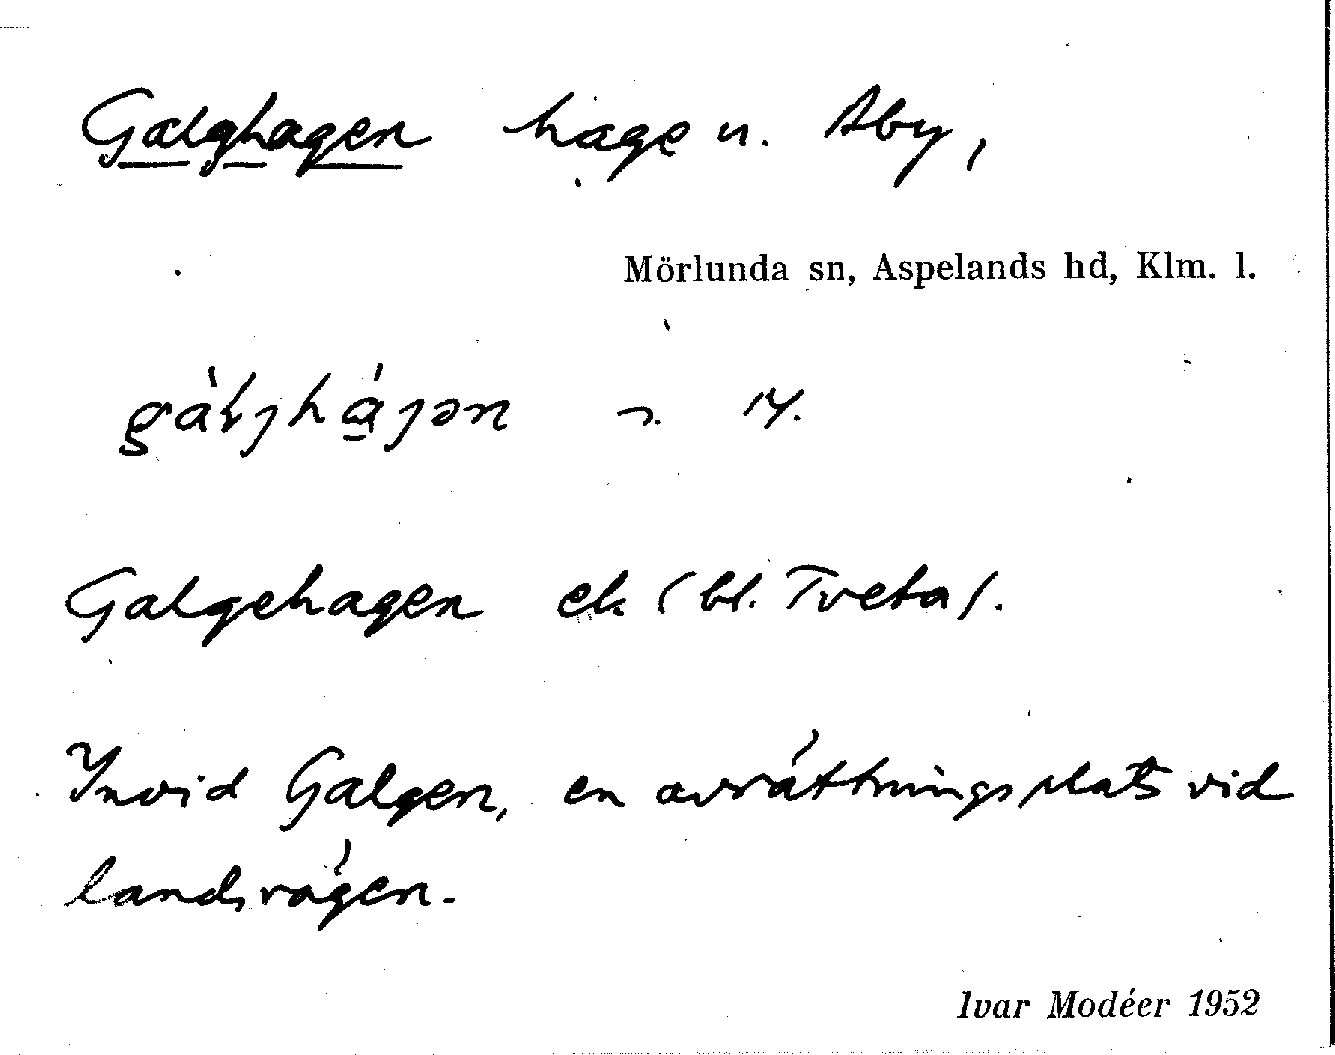 Galghagen hage u. Åby,
Mörlunda sn, Aspelands hd, Klm. l.
14.
Galgehagen ek (bl. Tveta).
Invid Galgen, en avrättningsplats vid
landsvägen.
Ivar Modéer 1952